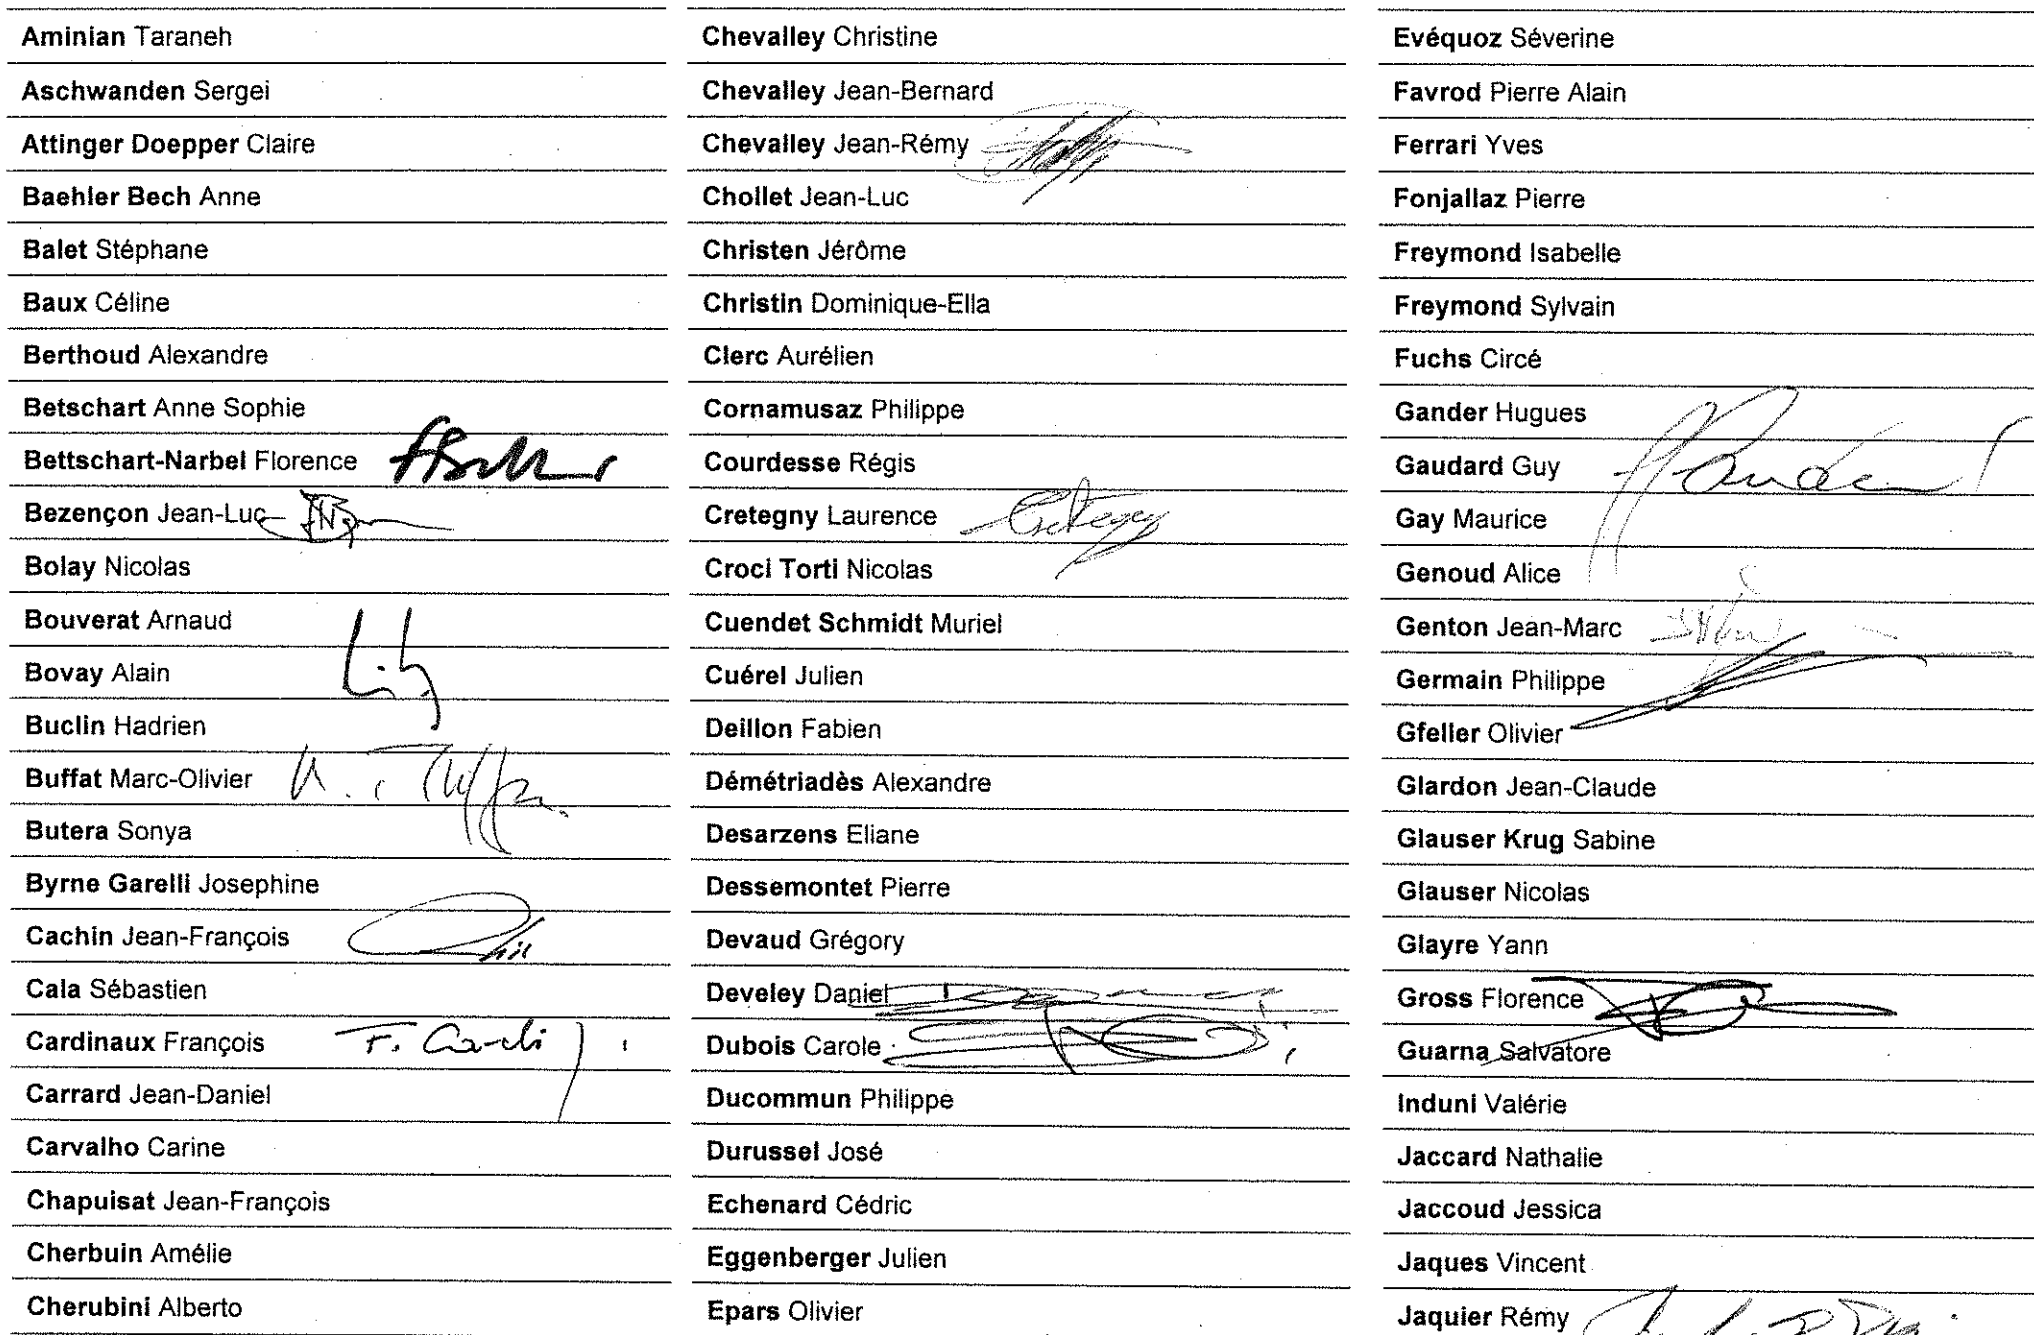 Aminian Taraneh
Aschwanden Sergei
Attinger Doepper Claire
Baehler Bech Anne
Balet Stéphane
Baux Céline
Berthoud Alexandre
Betschart Anne Sophie
Bettschart-Narbel Florence
Bezençon Jean-Luc
Bolay Nicolas
Bouverat Arnaud
Bovay Alain
Buclin Hadrien
Buffat Marc-Olivier
Butera Sonya
Byrne Garelli Josephine
Cachin Jean-François
Cala Sébastien
Cardinaux François F. Cardi
Carrard Jean-Daniel
Carvalho Carine
Chapuisat Jean-François
Cherbuin Amélie
Cherubini Alberto
Chevalley Christine
Chevalley Jean-Bernard
Chevalley Jean-Rémy
Chollet Jean-Luc
Christen Jérôme
Christin Dominique-Ella
Clerc Aurélien
Cornamusaz Philippe
Courdesse Régis
Cretegny Laurence Cretegny
Croci Torti Nicolas
Cuendet Schmidt Muriel
Cuérel Julien
Deillon Fabien
Démétriadès Alexandre
Desarzens Eliane
Dessemontet Pierre
Devaud Grégory
Develey Daniel
Dubois Carole
Ducommun Philippe
Durussel José
Echenard Cédric
Eggenberger Julien
Epars Olivier
Evéquoz Séverine
Favrod Pierre Alain
Ferrari Yves
Fonjallaz Pierre
Freymond Isabelle
Freymond Sylvain
Fuchs Circé
Gander Hugues
Gaudard Guy
Gay Maurice
Genoud Alice
Genton Jean-Marc
Germain Philippe
Gfeller Olivier
Glardon Jean-Claude
Glauser Krug Sabine
Glauser Nicolas
Glayre Yann
Gross Florence
Guarna Salvatore
Induni Valérie
Jaccard Nathalie
Jaccoud Jessica
Jaques Vincent
Jaquier Rémy